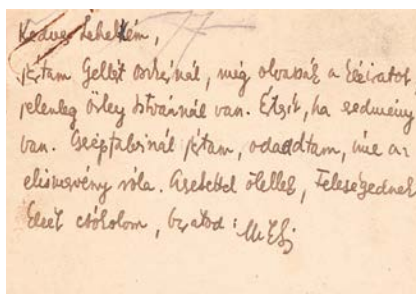 Kedves Lehelkém,
jártam Gellért Oszkárnál, még olvassák a kéziratot,
jelenleg Örley Istvánnál van. Értesít, ha eredmény
van. Cserépfalvinál jártam, odaadtam, íme az
elismervény róla. Szeretettel ölellek, Feleségednek
kezét csókolom, barátod: